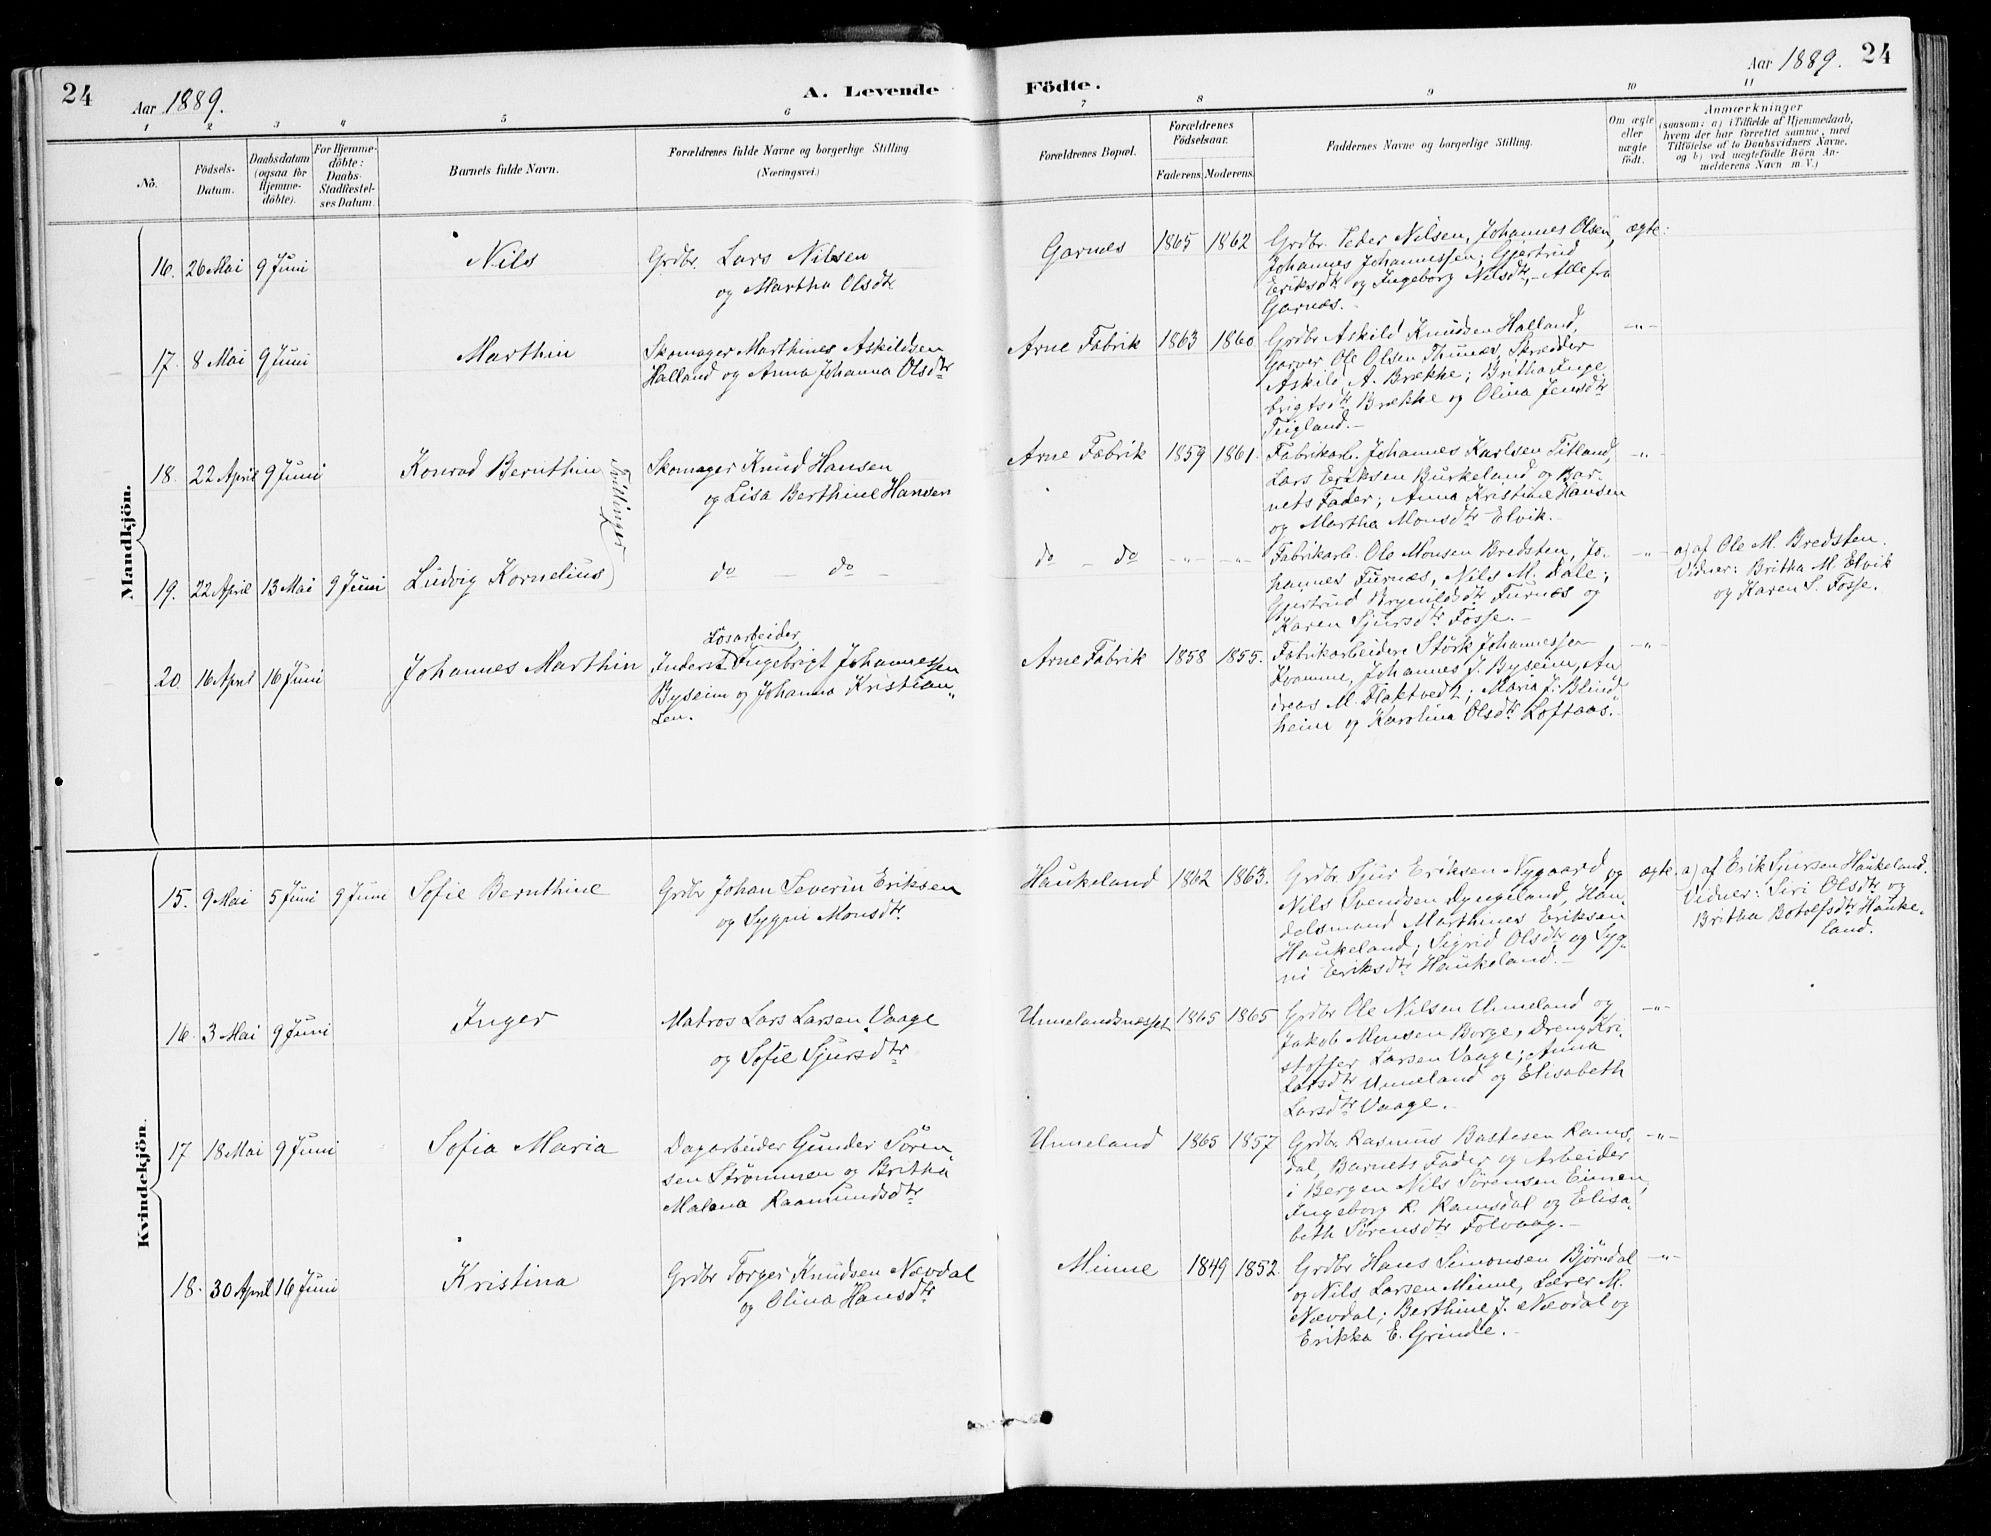 24
Aar 1889.
A. Levende
Födte.
Aar 1889.
24
1 2 3 4 5 6 7 8 9 10 11
No.
Födsels-
Datum.
Daabsdatum
(ogsaa for
Hjemme-
döbte).
For Hjemme-
döbte:
Daabs-
Stadfæstel-
ses Datum.
Barnets fulde Navn.
Forældrenes fulde Navne og borgerlige Stilling
(Næringsvei.)
Forældrenes Bopæl.
Forældrenes
Födselsaar.
Faderens Moderens
Faddernes Navne og borgerlige Stilling.
Om ægte
eller
uægte
født.
Anmærkninger
(saasom: a) i Tilfælde af Hjemmedaab,
hvem der har forrettet samme, med
Tilföielse af to Daabsvidners Navne,
og b) ved uægtefödte Börn An-
melderens Navn m. V.)
Mandkjön.
16. 26 Mai 9 Juni
Nils
Grdbr. Lars Nilsen
og Martha Olsdtr
Garnæs 1865 1862
Grdbr. Peder Nilsen, Johannes Olsen,
Johannes Johannessen; Gjertrud
Eriksdtr og Ingeborg Nilsdtr, - Alle fra
Garnæs.-
ægte:
17. 8 Mai 9 Juni
Marthin
Skomager Marthines Askildsen
Halland og Anna Johanna Olsdtr
Arne Fabrik 1863 1860
Grdbr Askild Knudsen Halland,
Garver Ole Olsen Thunæs, Skrædder
Askild A. Brække; Britha Inge
brigtsdtr Brække og Olina Jensdtr
Teigland.-
-"-
18. 22 April 9 Juni
Konrad Bernthin
Tvillinger
Skomager Knud Hansen
og Lisa Berthine Hansen
Arne Fabrik 1859 1861.
Fabrikarb. Johannes Karlsen Titland,
Lars Eriksen Burkeland og Bar-
nets Fader; Anna Kristine Hansen
og Martha Monsdtr Elvik.-
-"-
19. 22 April 13 Mai 9 Juni
Ludvig Kornelius
do - do -
do - do -"- -"-
Fabrikarb. Ole Monsen Bredsten, Jo-
hannes Furnæs, Nils M. Dale;
Gjertrud Brynildsdtr Furnæs og
Karen Sjursdtr Fosse.-
-"-
a) af Ole M. Bredsten.
Vidner: Britha M. Elvik
og Karen S. Fosse.
20. 16 April 16 Juni
Johannes Marthin
Losarbeider
Inderst Ingebrigt Johannessen
Byseim og Johanna Kristian-
sen.
Arne Fabrik 1858 1855.
Fabrikarbeidere Störk Johannessen
Kvamme, Johannes J. Byseim, An
dreas M. Flaktvedt; Maria J. Blind-
heim og Karolina Olsdtr Loftaas.
-"-
Kvindekjön.
15. 9 Mai 5 Juni 9 Juni
Sofie Bernthine
Grdbr Johan Severin Eriksen
og Sygni Monsdtr.
Haukeland 1862 1863.
Grdbr. Sjur Eriksen Nygaard og
Nils Svendsen Dyngeland, Han-
delsmand Marthines Eriksen
Haukeland; Sigrid Olsdtr og Syg-
ni Eriksdtr Haukeland.-
ægte.
a) af Erik Sjursen Haukeland.
Vidner: Siri Olsdtr og
Britha Botolfsdtr Hauke-
land.
16. 3 Mai 9 Juni
Inger
Matros Lars Larsen Vaage
og Sofie Sjursdtr
Unnelandsnæsset 1865 1865
Grdbr Ole Nilsen Unneland og
Jakob Monsen Borge, Dreng Kri-
stoffer Larsen Vaage; Anna
Larsdtr Unneland og Elisabeth
Larsdtr Vaage.-
-"-
17 18 Mai 9 Juni
Sofia Maria
Dagarbeider Gunder Sören-
sen Strömmen og Britha
Malena Raamundsdtr
Unneland 1865 1857
Grdbr. Rasmus Bastesen Rams-
dal, Barnets Fader og Arbeider
i Bergen Nils Sörensen Eimen,
Ingeborg R. Ramsdal og Elisa-
beth Sörensdtr Folvaag.-
-"-
18. 30 April 16 Juni
Kristina
Grdbr Torger Knudsen Nævdal
og Olina Hansdtr
Minne 1849 1852.
Grdbr Hans Simonsen Björndal
og Nils Larsen Minne, Lærer M.
Nævdal; Berthine J. Nævdal og
Erikka E. Grinde.-
-"-